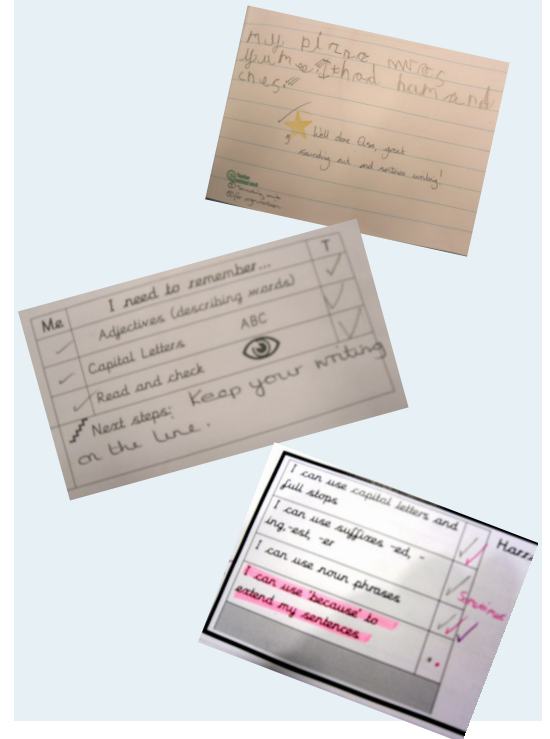 my pizza was
yumee I had ham and
ches
Well done Asa, great
sounding out and sentence writing!
Me I need to remember... T
Adjectives (describing words)
Capital Letters ABC
Read and check
Next steps: Keep your writing
on the line.
I can use capital letters and
full stops
I can use suffixes -ed, -
ing, -est, -er
I can use noun phrases
I can use 'because' to
extend my sentences